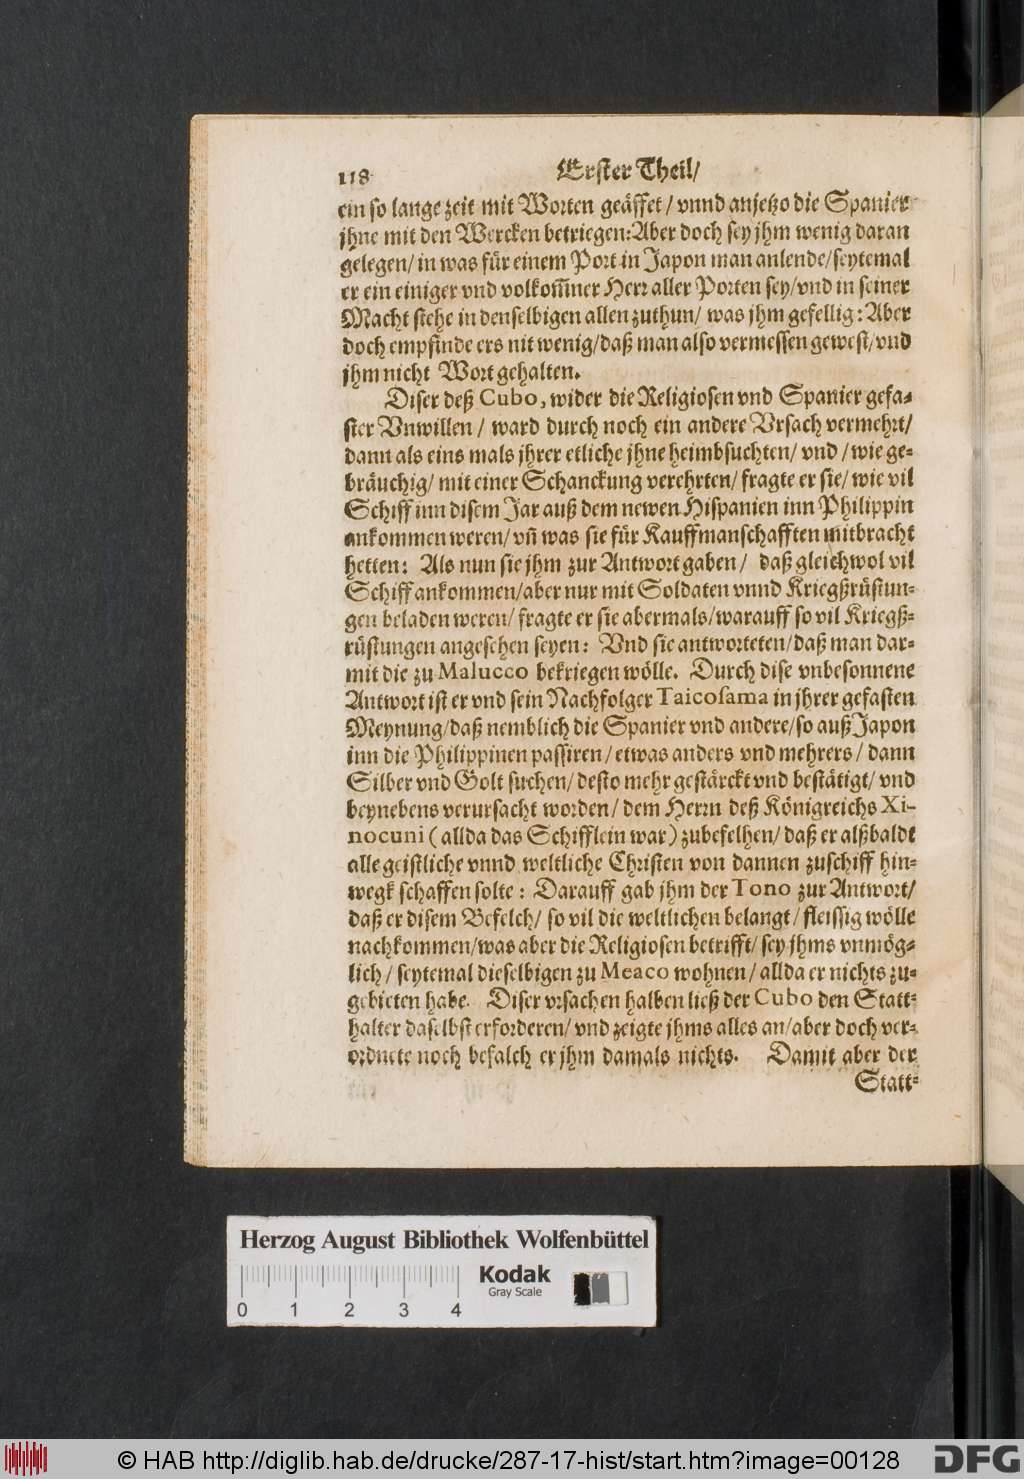 118 Erster Theil/
ein so lange zeit mit Worten geäffet / vnnd anjetzo die Spanier
jhne mit den Wercken betriegen: Aber doch sey jhm wenig daran
gelegen/ in was für einem Port in Japon man anlende/ seytemal
er ein einiger vnd volkom̅ner Herr aller Porten sey/ vnd in seiner
Macht stehe in denselbigen allen zuthun/ was jhm gefellig: Aber
doch empfinde ers nit wenig/ daß man also vermessen gewest/ vnd
jhm nicht Wort gehalten.
Diser deß Cubo, wider die Religiosen vnd Spanier gefa-
ster Vnwillen / ward durch noch ein andere Vrsach vermehrt/
dann als eins mals jhrer etliche jhne heimbsuchten/ vnd / wie ge-
bräuchig/ mit einer Schanckung verehrten/ fragte er sie/ wie vil
Schiff inn disem Jar auß dem newen Hispanien inn Philippin
ankommen weren/ vn̅ was sie für Kauffmanschafften mitbracht
hetten: Als nun sie jhm zur Antwort gaben / daß gleichwol vil
Schiff ankommen/ aber nur mit Soldaten vnnd Kriegßrüstun-
gen beladen weren/ fragte er sie abermals/ warauff so vil Kriegß-
rüstungen angesehen seyen: Vnd sie antworteten/ daß man dar-
mit die zu Malucco bekriegen wölle. Durch dise vnbesonnene
Antwort ist er vnd sein Nachfolger Taicosama in jhrer gefasten
Meynung/ daß nemblich die Spanier vnd andere/ so auß Japon
inn die Philippinen passiren/ etwas anders vnd mehrers / dann
Silber vnd Golt suchen/ desto mehr gestärckt vnd bestätigt/ vnd
beynebens verursacht worden/ dem Herrn deß Königreichs Xi-
nocuni ( allda das Schifflein war ) zubefelhen/ daß er alßbaldt
alle geistliche vnnd weltliche Christen von dannen zuschiff hin-
wegk schaffen solte : Darauff gab jhm der Tono zur Antwort/
daß er disem Befelch/ so vil die weltlichen belangt / fleissig wölle
nachkommen/ was aber die Religiosen betrifft/ sey jhms vnmög-
lich / seytemal dieselbigen zu Meaco wohnen / allda er nichts zu-
gebieten habe. Diser vrsachen halben ließ der Cubo den Statt-
halter daselbst erforderen/ vnd zeigte jhms alles an/ aber doch ver-
ordnete noch befalch er jhm damals nichts. Damit aber der
Statt-
Herzog August Bibliothek Wolfenbüttel
Kodak
Gray Scale
0 1 2 3 4
© HAB http://diglib.hab.de/drucke/287-17-hist/start.htm?image=00128
DFG